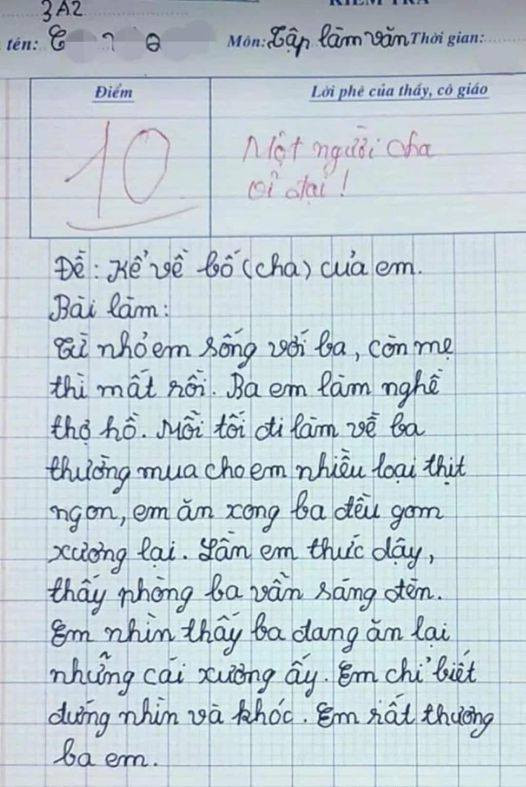 KIỂM TRA
3A2
tên:
Môn: Tập làm văn Thời gian:
Điểm
Lời phê của thầy, cô giáo
10
Một người cha
vĩ đại!
Đề: Kể về bố (cha) của em.
Bài làm:
Từ nhỏ em sống với ba, còn mẹ
thì mất rồi. Ba em làm nghề
thợ hồ. Mỗi tối đi làm về ba
thường mua cho em nhiều loại thịt
ngon, em ăn xong ba đều gom
xương lại. Lần em thức dậy,
thấy phòng ba vẫn sáng đèn.
Em nhìn thấy ba đang ăn lại
những cái xương ấy. Em chỉ biết
đứng nhìn và khóc. Em rất thương
ba em.